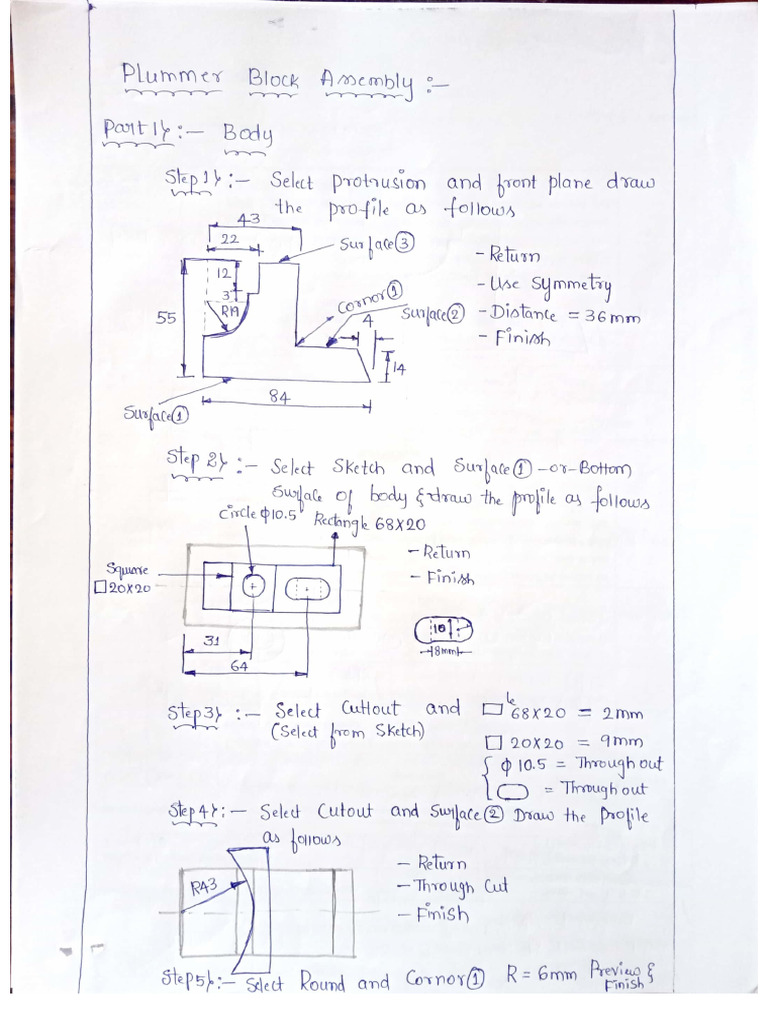 Plummer Block Assembly :-
Part 1} :- Body
Step 1} :- Select protrusion and front plane draw
the profile as follows
43
22
Surface ③
- Return
12
- Use Symmetry
3
Cornor ①
R19
Surface ②
- Distance = 36mm
55
4
- Finish
14
84
Surface ①
Step 2} :- Select Sketch and Surface ① -or- Bottom
Surface of body & draw the profile as follows
Circle ϕ10.5
Rectangle 68X20
- Return
Square
□ 20X20
- Finish
10
31
18mm
64
Step 3} :- Select Cutout and □le 68X20 = 2mm
(Select from Sketch)
□ 20X20 = 9mm
ϕ 10.5 = Through out
= Through out
Step 4} :- Select Cutout and Surface ② Draw the Profile
as follows
- Return
R43
- Through Cut
- Finish
Step 5} :- Select Round and Cornor ① R = 6mm Preview & Finish